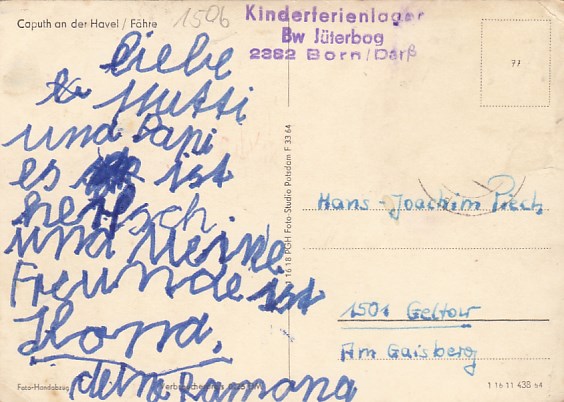 Caputh an der Havel / Fähre
1506
Kinderferienlager
Bw Jüterbog
2382 Born/Darß
77
liebe
Mutti
und Papi
es ist
und Meine
Freunde ist
deine Ramona
Hans-Joachim Piech
1501 Geltow
Am Gaisberg
II 16 18 PGH Foto-Studio Potsdam F 33 64
Foto-Handabzug
1 16 11 438 64